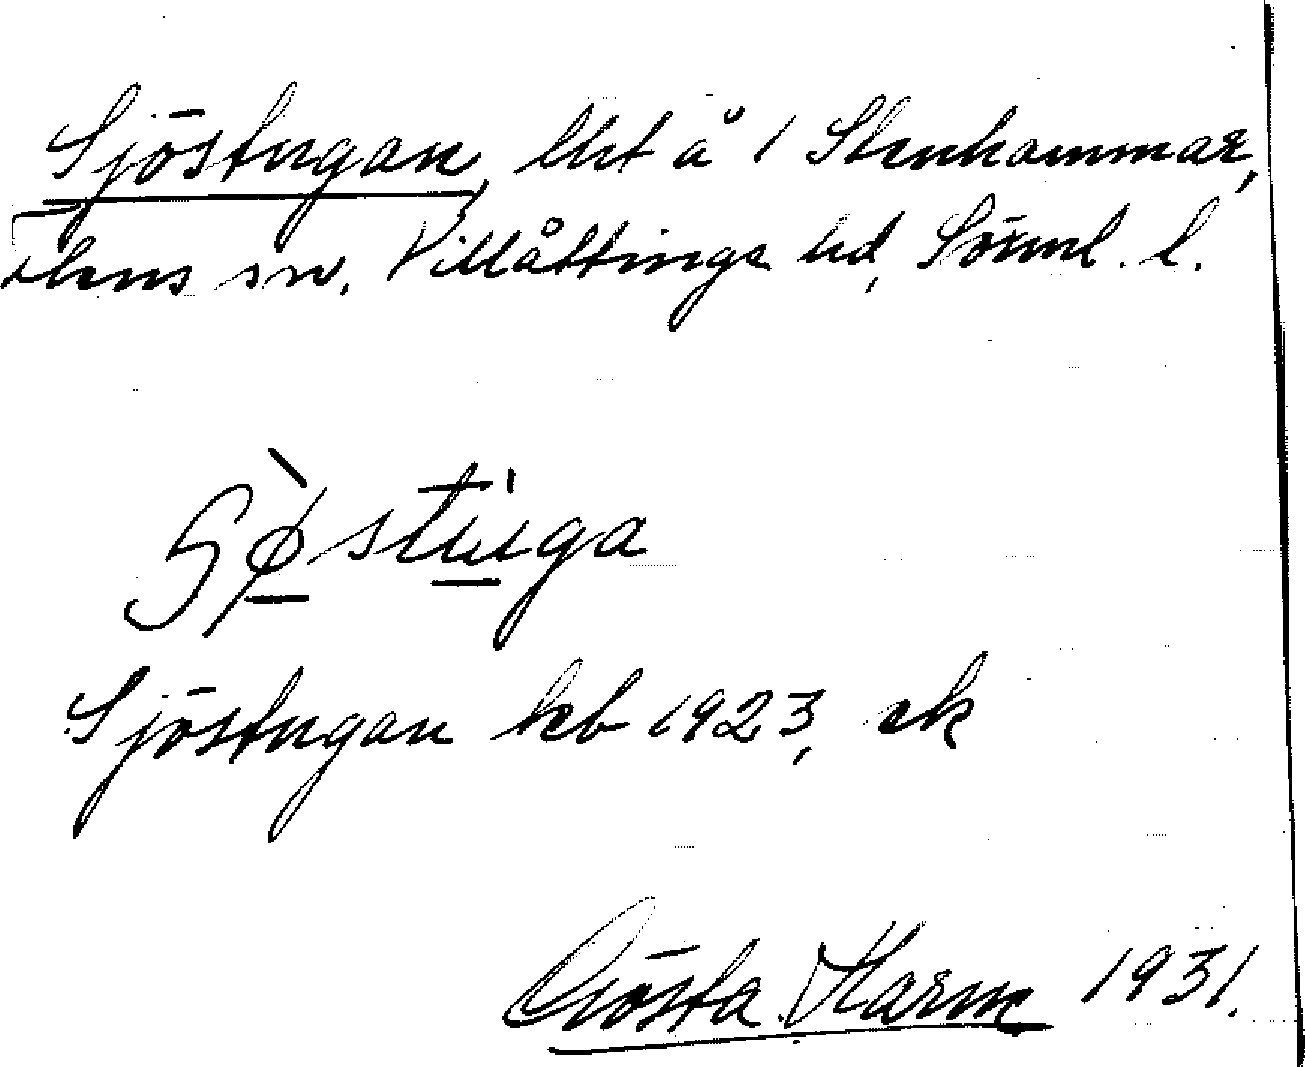 Sjöstugan, lht å 1 Stenhammar,
Flens sn, Villåttinge hd, Sörml. l.
Sjöstugan kb 1923, ek
Gösta Harm 1931.